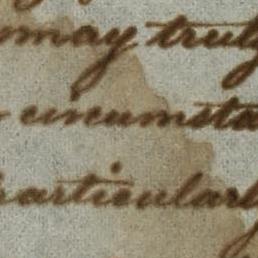 may truly
circumsta
particularl